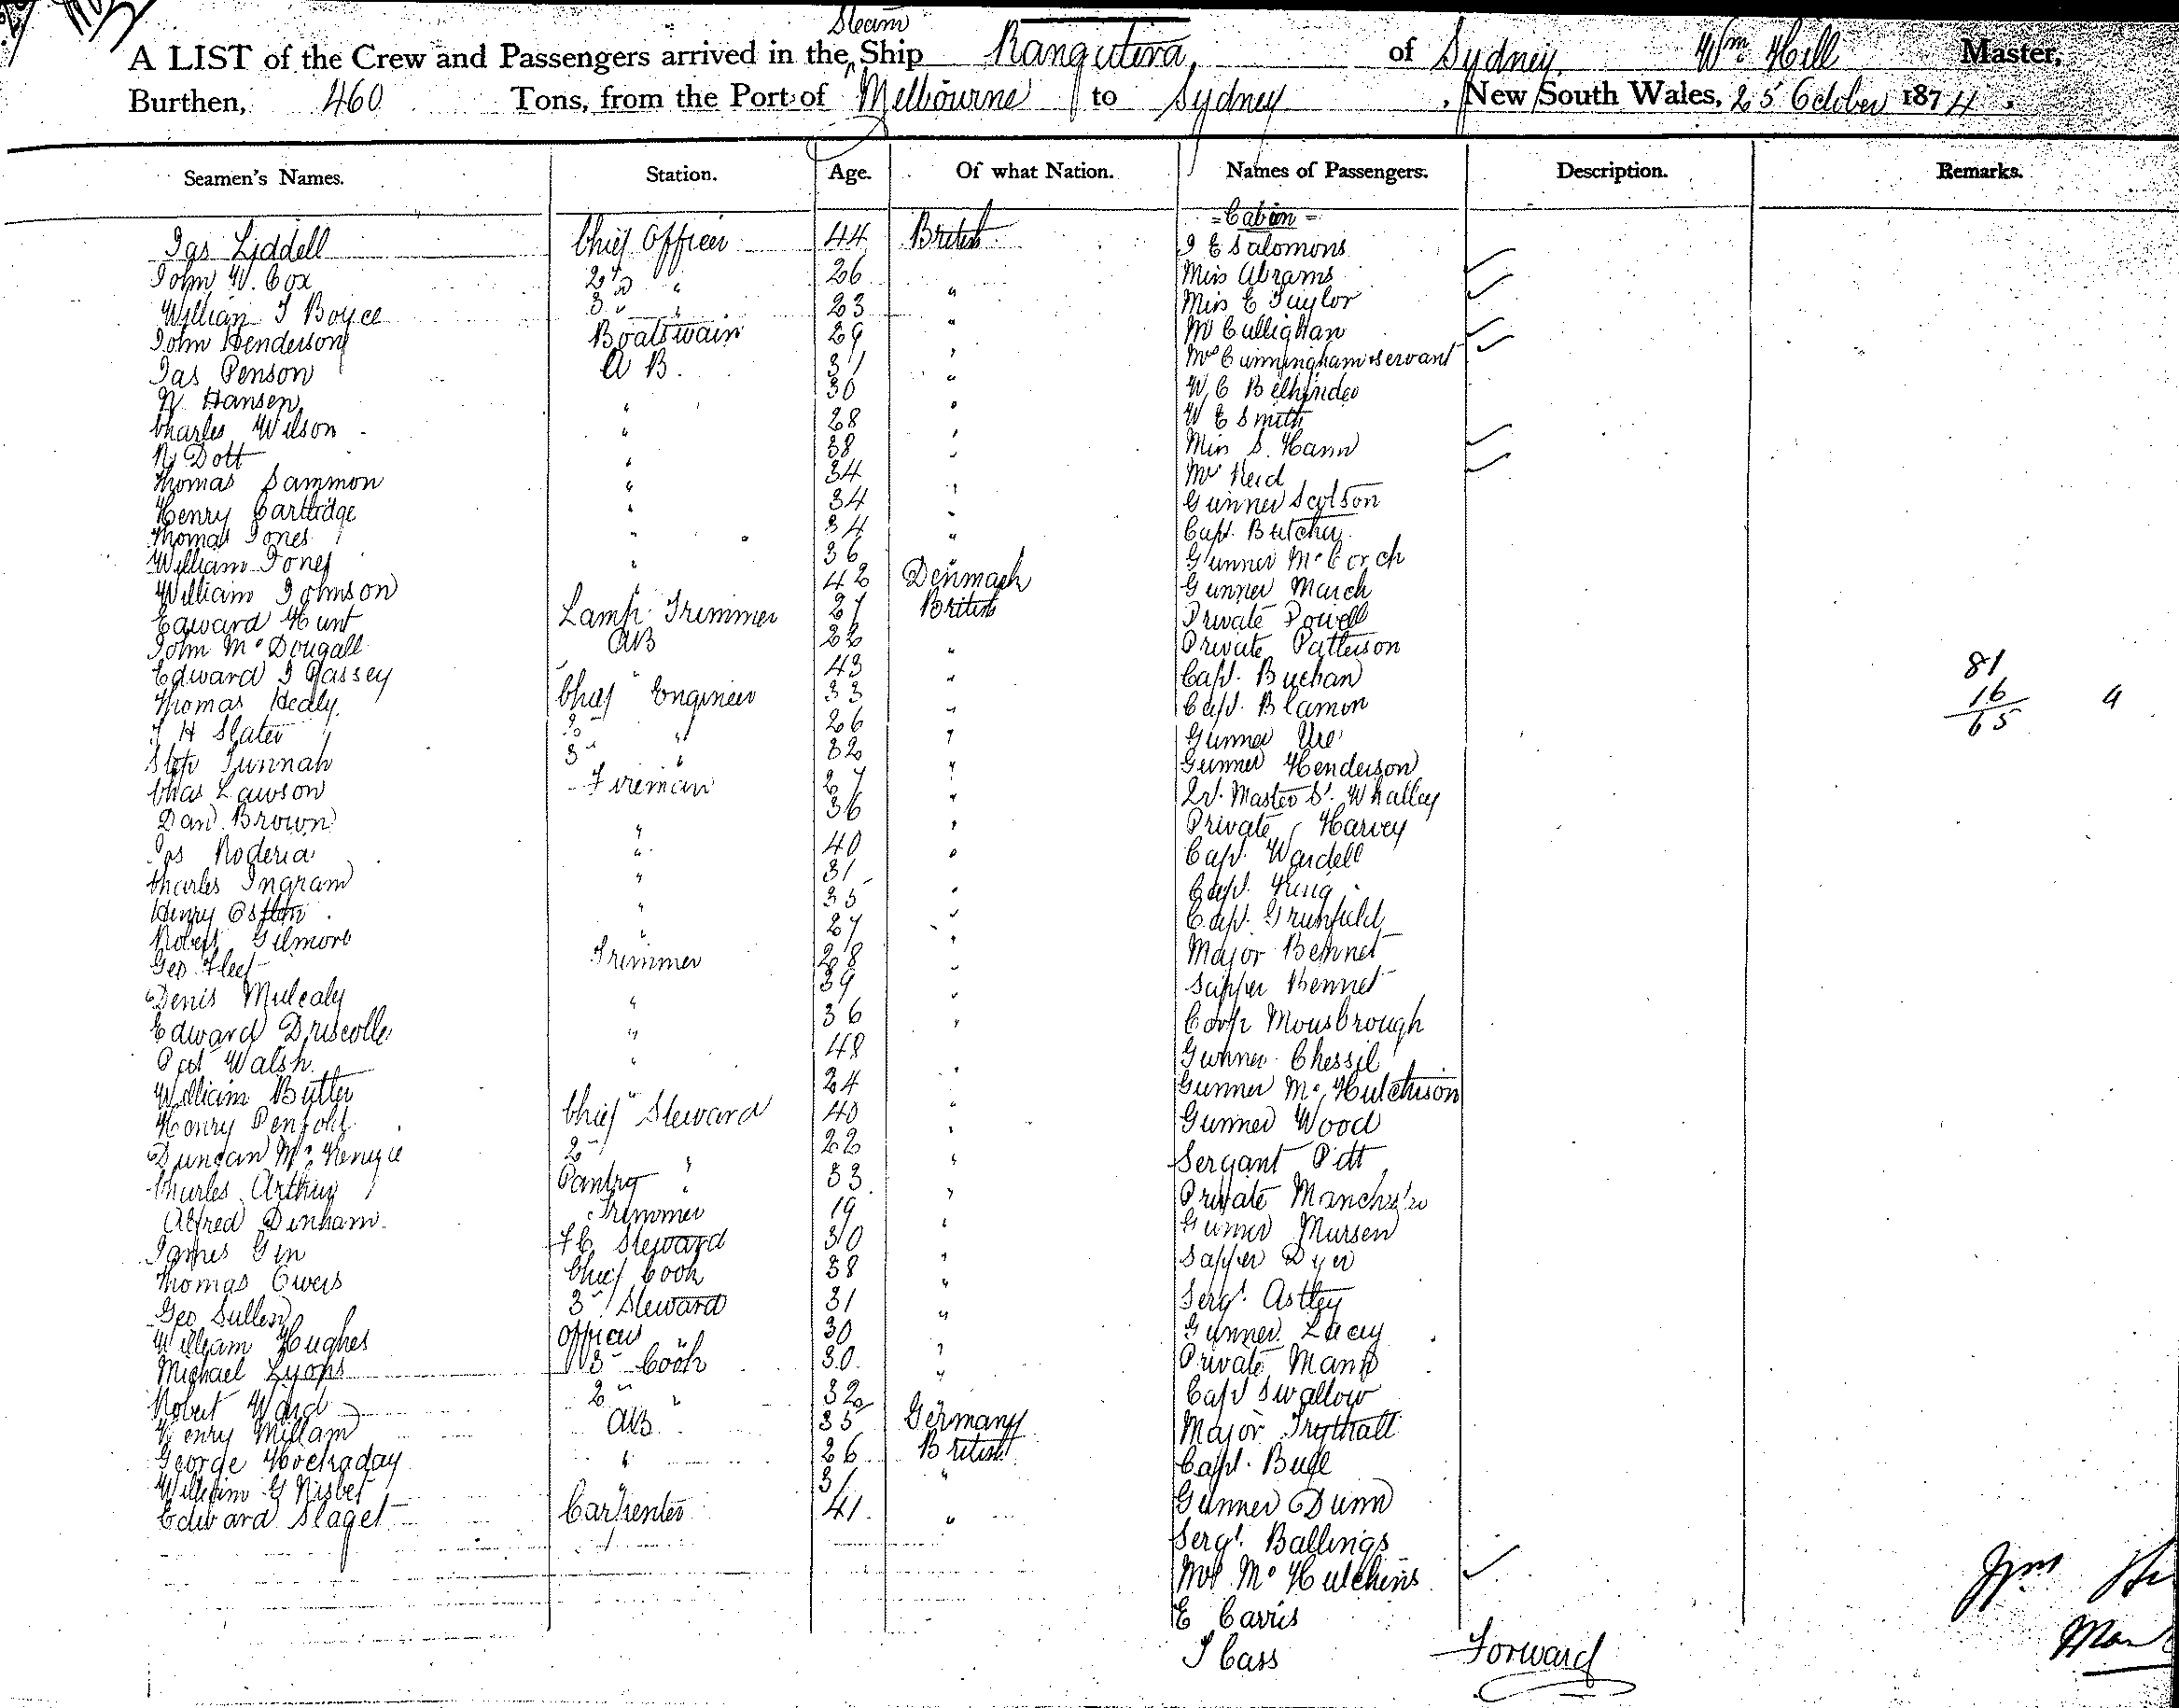 A LIST of the Crew and Passengers arrived in the Steam Ship Rangutira, of Sydney, Wm Hill Master,
Burthen, 460 Tons, from the Port of Melbourne to Sydney, New South Wales, 25 October 1874.
Seamen's Names. Station. Age. Of what Nation. Names of Passengers. Description. Remarks.
= Cabin =
Jas Liddell Chief Officer 44 British J E Salomons
John W. Cox 2nd " 26 Miss Abrams
William J Boyce 3 " 23 " Miss E Taylor
John Henderson Boatswain 29 " Mr Cullighan
Jas Penson A B. 31 " Mrs Cunningham & servant
N Hansen " 30 " W C
Charles Wilson " 28 " W E Smith
N Dott " 38 " Miss S. Hann
Thomas Sammon " 34 " Mr Reid
Henry Cartledge " 34 " Gunner
Thomas Jones " 34 " Capt. Butcher
William Jones " 36 " Gunner
William Johnson 42 Denmark Gunner March
Edward Hunt Lamp Trimmer 27 British Private Powell
John McDougall AB 22 " Private Patterson
Edward J Passey " 43 " Capt. Buchan
Thomas Healy Chief Engineer 33 " Capt. Blamon
J H Slater 2 " 26 " Gunner Ure
Step Tunnah 3 " 32 " Gunner Henderson
Chas Lawson Fireman 27 " Qr. Master St. Whalley
Dan. Brown " 36 " Private Harvey
Jas Roderia " 40 " Capt. Wardell
Charles Ingram " 31 " Capt. King
Henry " 35 " Capt. Grunfield
Robert Gilmore " 27 " Major Bennet
Geo. Fleet Trimmer 28 " Sapper Bennet
Denis Mulcaly " 39 " Corp Mousbrough
Edward Driscolle " 36 " Gunner Chessil
Pat Walsh " 48 " Gunner McHutchison
William Butler " 24 " Gunner Wood
Henry Penfold Chief Steward 40 " Sergant Pitt
Duncan McKenzie 2 " 22 "
Charles Arthur Pantry " 33 " Private
Alfred Denham Trimmer 19 " Gunner Mursen
James Gin F C Steward 30 " Sapper Dyer
Thomas Owers Chief Cook 38 " Sergt. Astley
Geo Sullen 3 Steward 31 " Gunner Lacey
William Hughes Officers " 30 " Private Mann
Michael Lyons 3 Cook 30 " Capt Swallow
Robert Ward 2 " 32 "
Henry Millam AB 35 Germany Major Trythall
George Hockaday " 26 British Capt. Bull
William G Nisbet " 31 " Gunner Dunn
Edward Slaget Carpenter 41 " Sergt. Ballings
Mrs McHutchins
E Carris
J Cass
Forward
81
16
65
4
Wm Hi